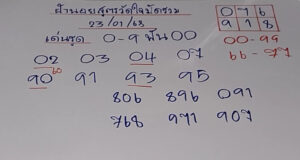 ฝ่านอยสูตรวัดใจบัดซวม
23/01/63
เด่นชุด 0-9 ฟัน 00
0 7 6
9 1 8
00-99
66-77
02 03 04 07
90 60 91 93 95
806 896 091
768 971 907